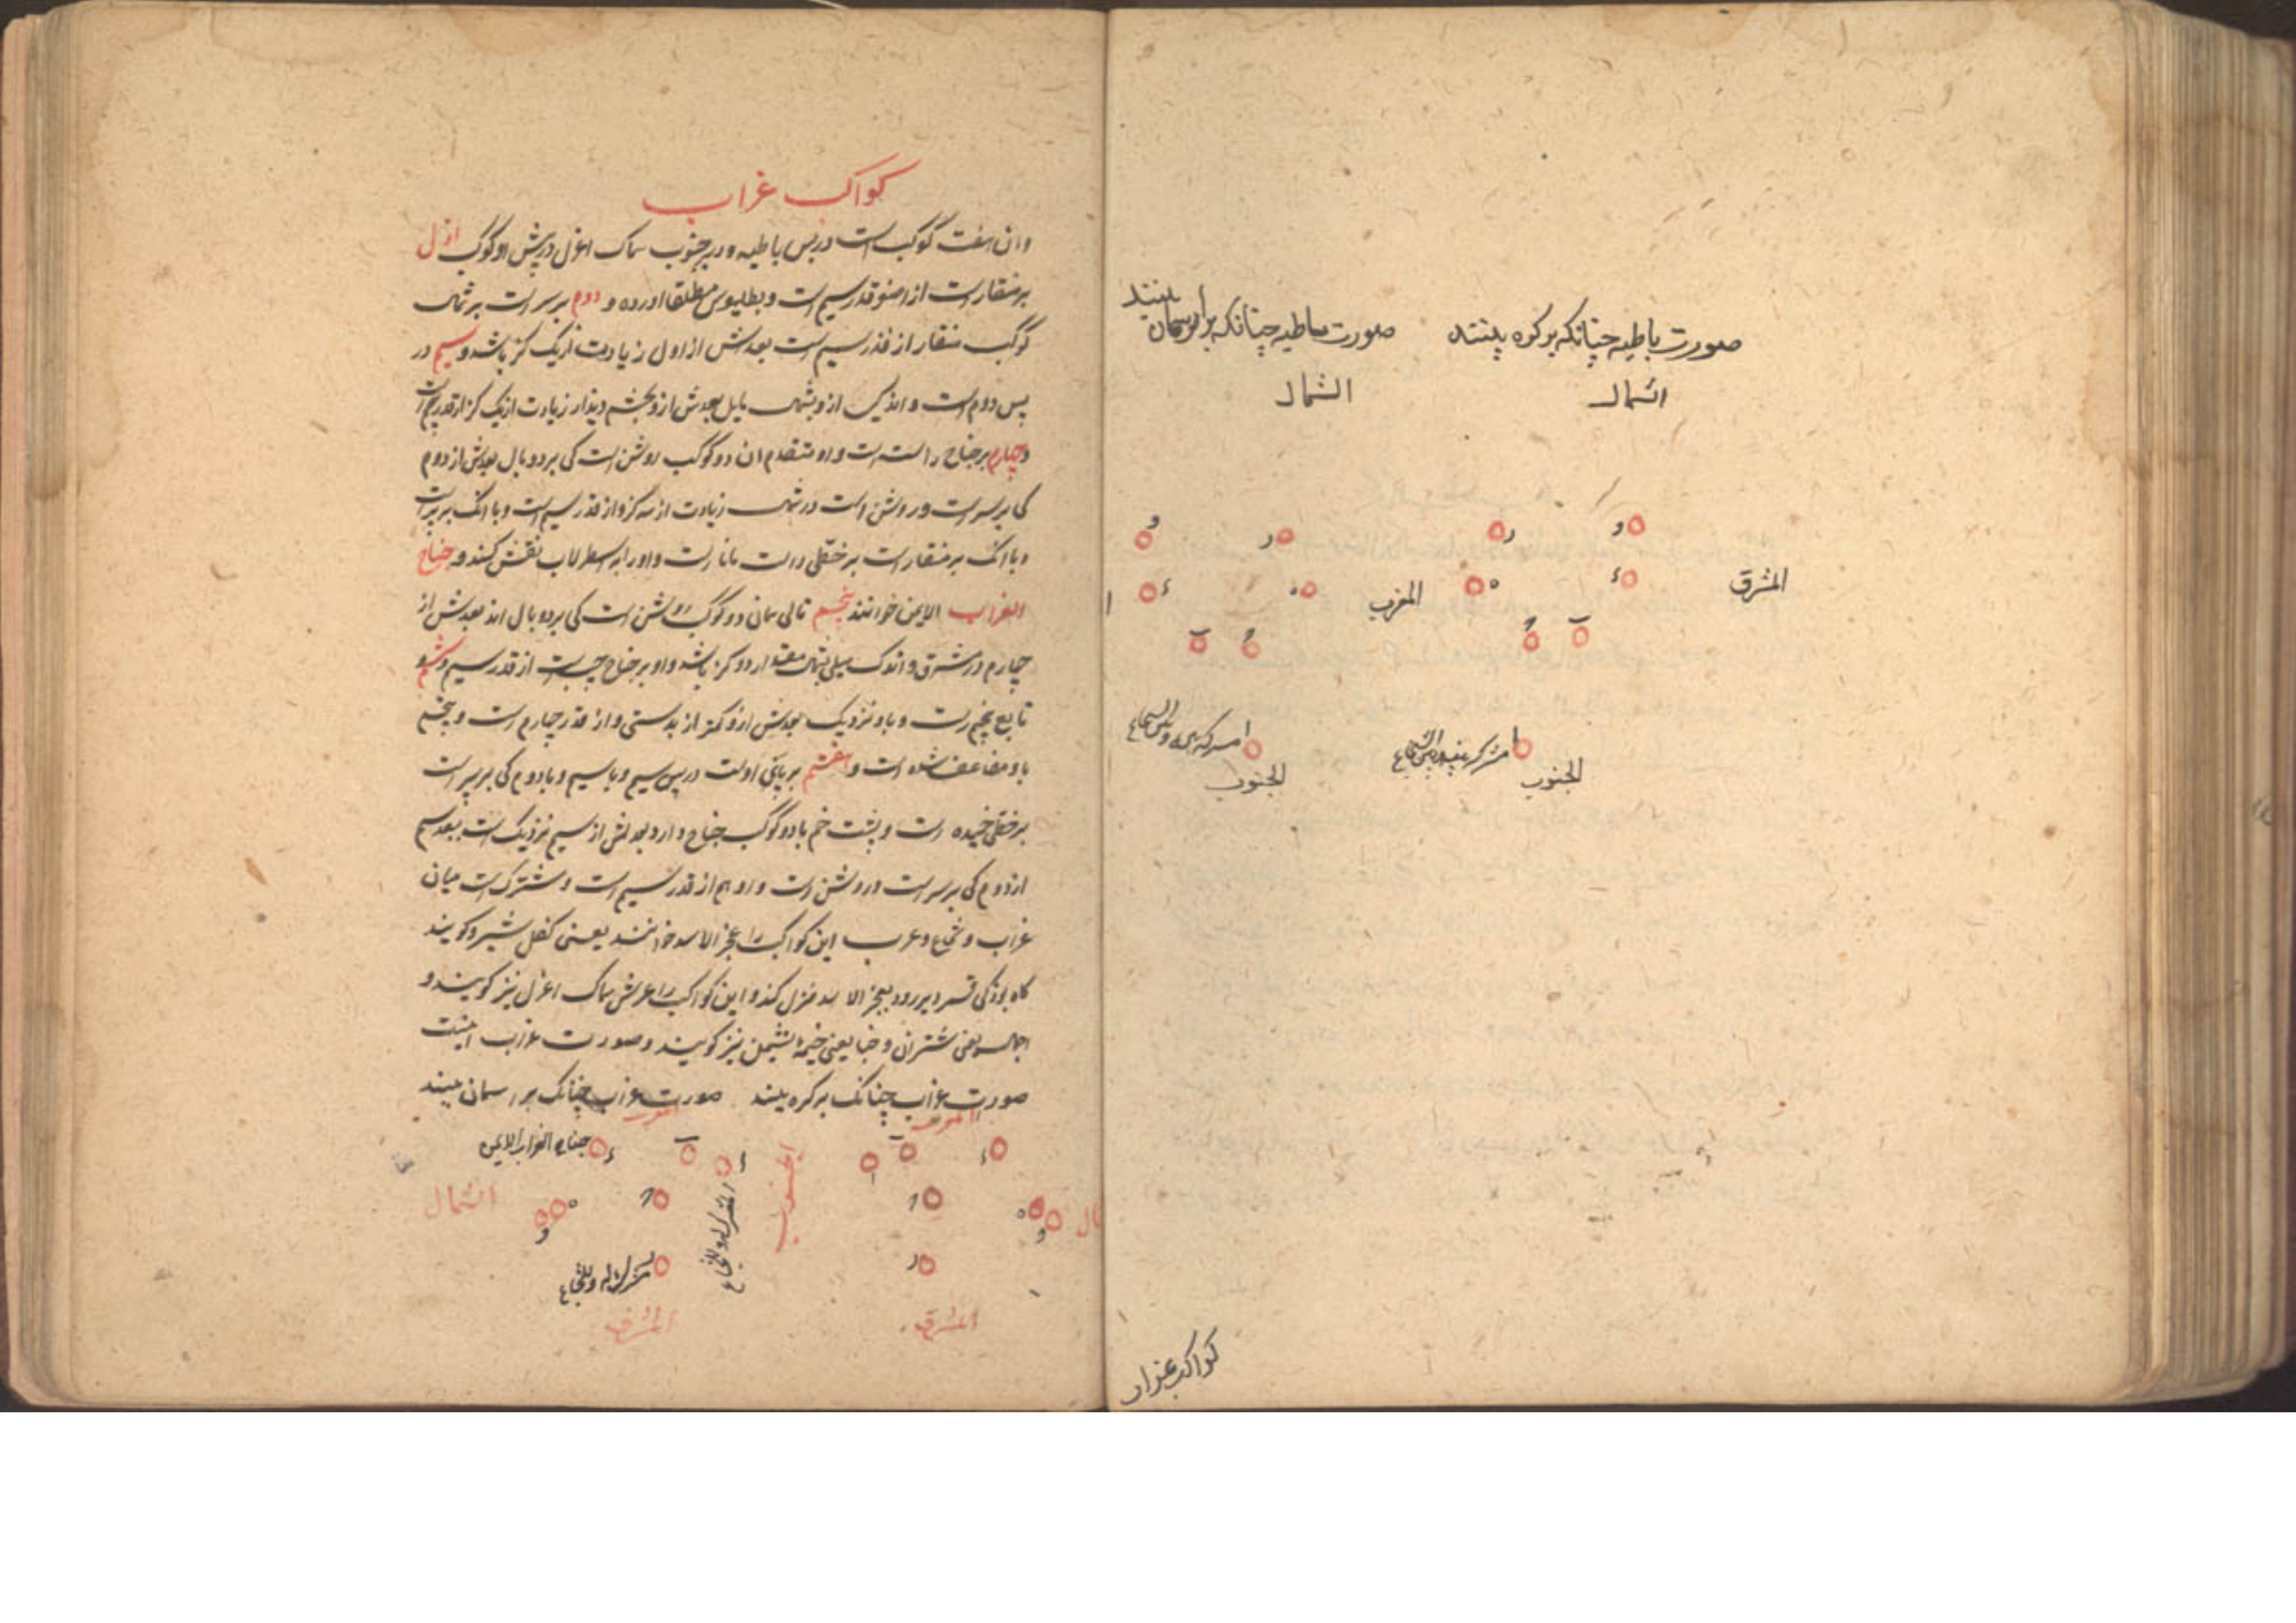 صورت باطیه چنانکه بر کره بینند
صورت باطیه چنانکه بر آسمان بینند
الشمال
الشمال
و
ر
ر
و
المشرق
ء
ه
المغرب
ه
ء
ا
ب
ح
ح
ب
ا
ا
الجنوب
الجنوب
کواکب غراب
کواکب غراب
وان هفت کوکب است در پس باطیه و در جنوب سماک اعزل در پیش او کوکب اول
بر منقار است از اصغر قدر سیم است و بطلیوس مطلقا اورده و دوم بر سر است بر شمال
کوکب منقار از قدر سیم است بعدش از اول زیادت از یک کز باشد و سیم در
پس دوم است و اندکی از و بشمال مایل بعدش از و بچشم دیدار زیادت از یک کز از قدر پنجم است
و چهارم بر جناح راست است و او متقدم ان دو کوکب روشن است کی بر دو بال بعدش از دوم
کی بر سر است و روشن است در شمال زیادت از سه کز و از قدر سیم است و با انک بر سر است
و با انک بر منقار است بر خطی راست مانا راست و او را بر اسطرلاب نقش کنند و جناح
الغراب الایمن خوانند پنجم تالی همان دو کوکب روشن است کی بر دو بال اند بعدش از
چهارم در مشرق و اندک میلی بشمال مقدار دو کز باشد و او بر جناح چپ است از قدر سیم و ششم
تابع پنجم است و باو نزدیک بعدش ازو کمتر از بدستی و از قدر چهارم است و پنجم
باو مضاعف شده است و هفتم بر پای اوست در پس سیم و با سیم و با دوم کی بر سر است
بر خطی خمیده است و پشت خم با دو کوکب جناح دارد بعدش از سیم نزدیک است ببعد سیم
از دوم کی بر سر است و روشن است و او هم از قدر سیم است و مشترک است میان
غراب و شجاع و عرب این کواکب را عجز الاسد خوانند یعنی کفل شیر و کویند
کاه بود کی قمر دیر رود بعجز الاسد منزل کند و این کواکب را عرش سماک اعزل نیز کویند و
اجمال یعنی شتران و خبا یعنی خیمه پشمین نیز کویند و صورت غراب اینست
صورت غراب چنانک بر کره بینند صورت غراب چنانک بر اسمان بینند
المغرب
المغرب
ء
ب
ا
ب
ء
جناح الغراب الایمن
ا
الجنوب
ح
ه
و
ح
ه
و
الشمال
ر
ر
المشرق
المشرق